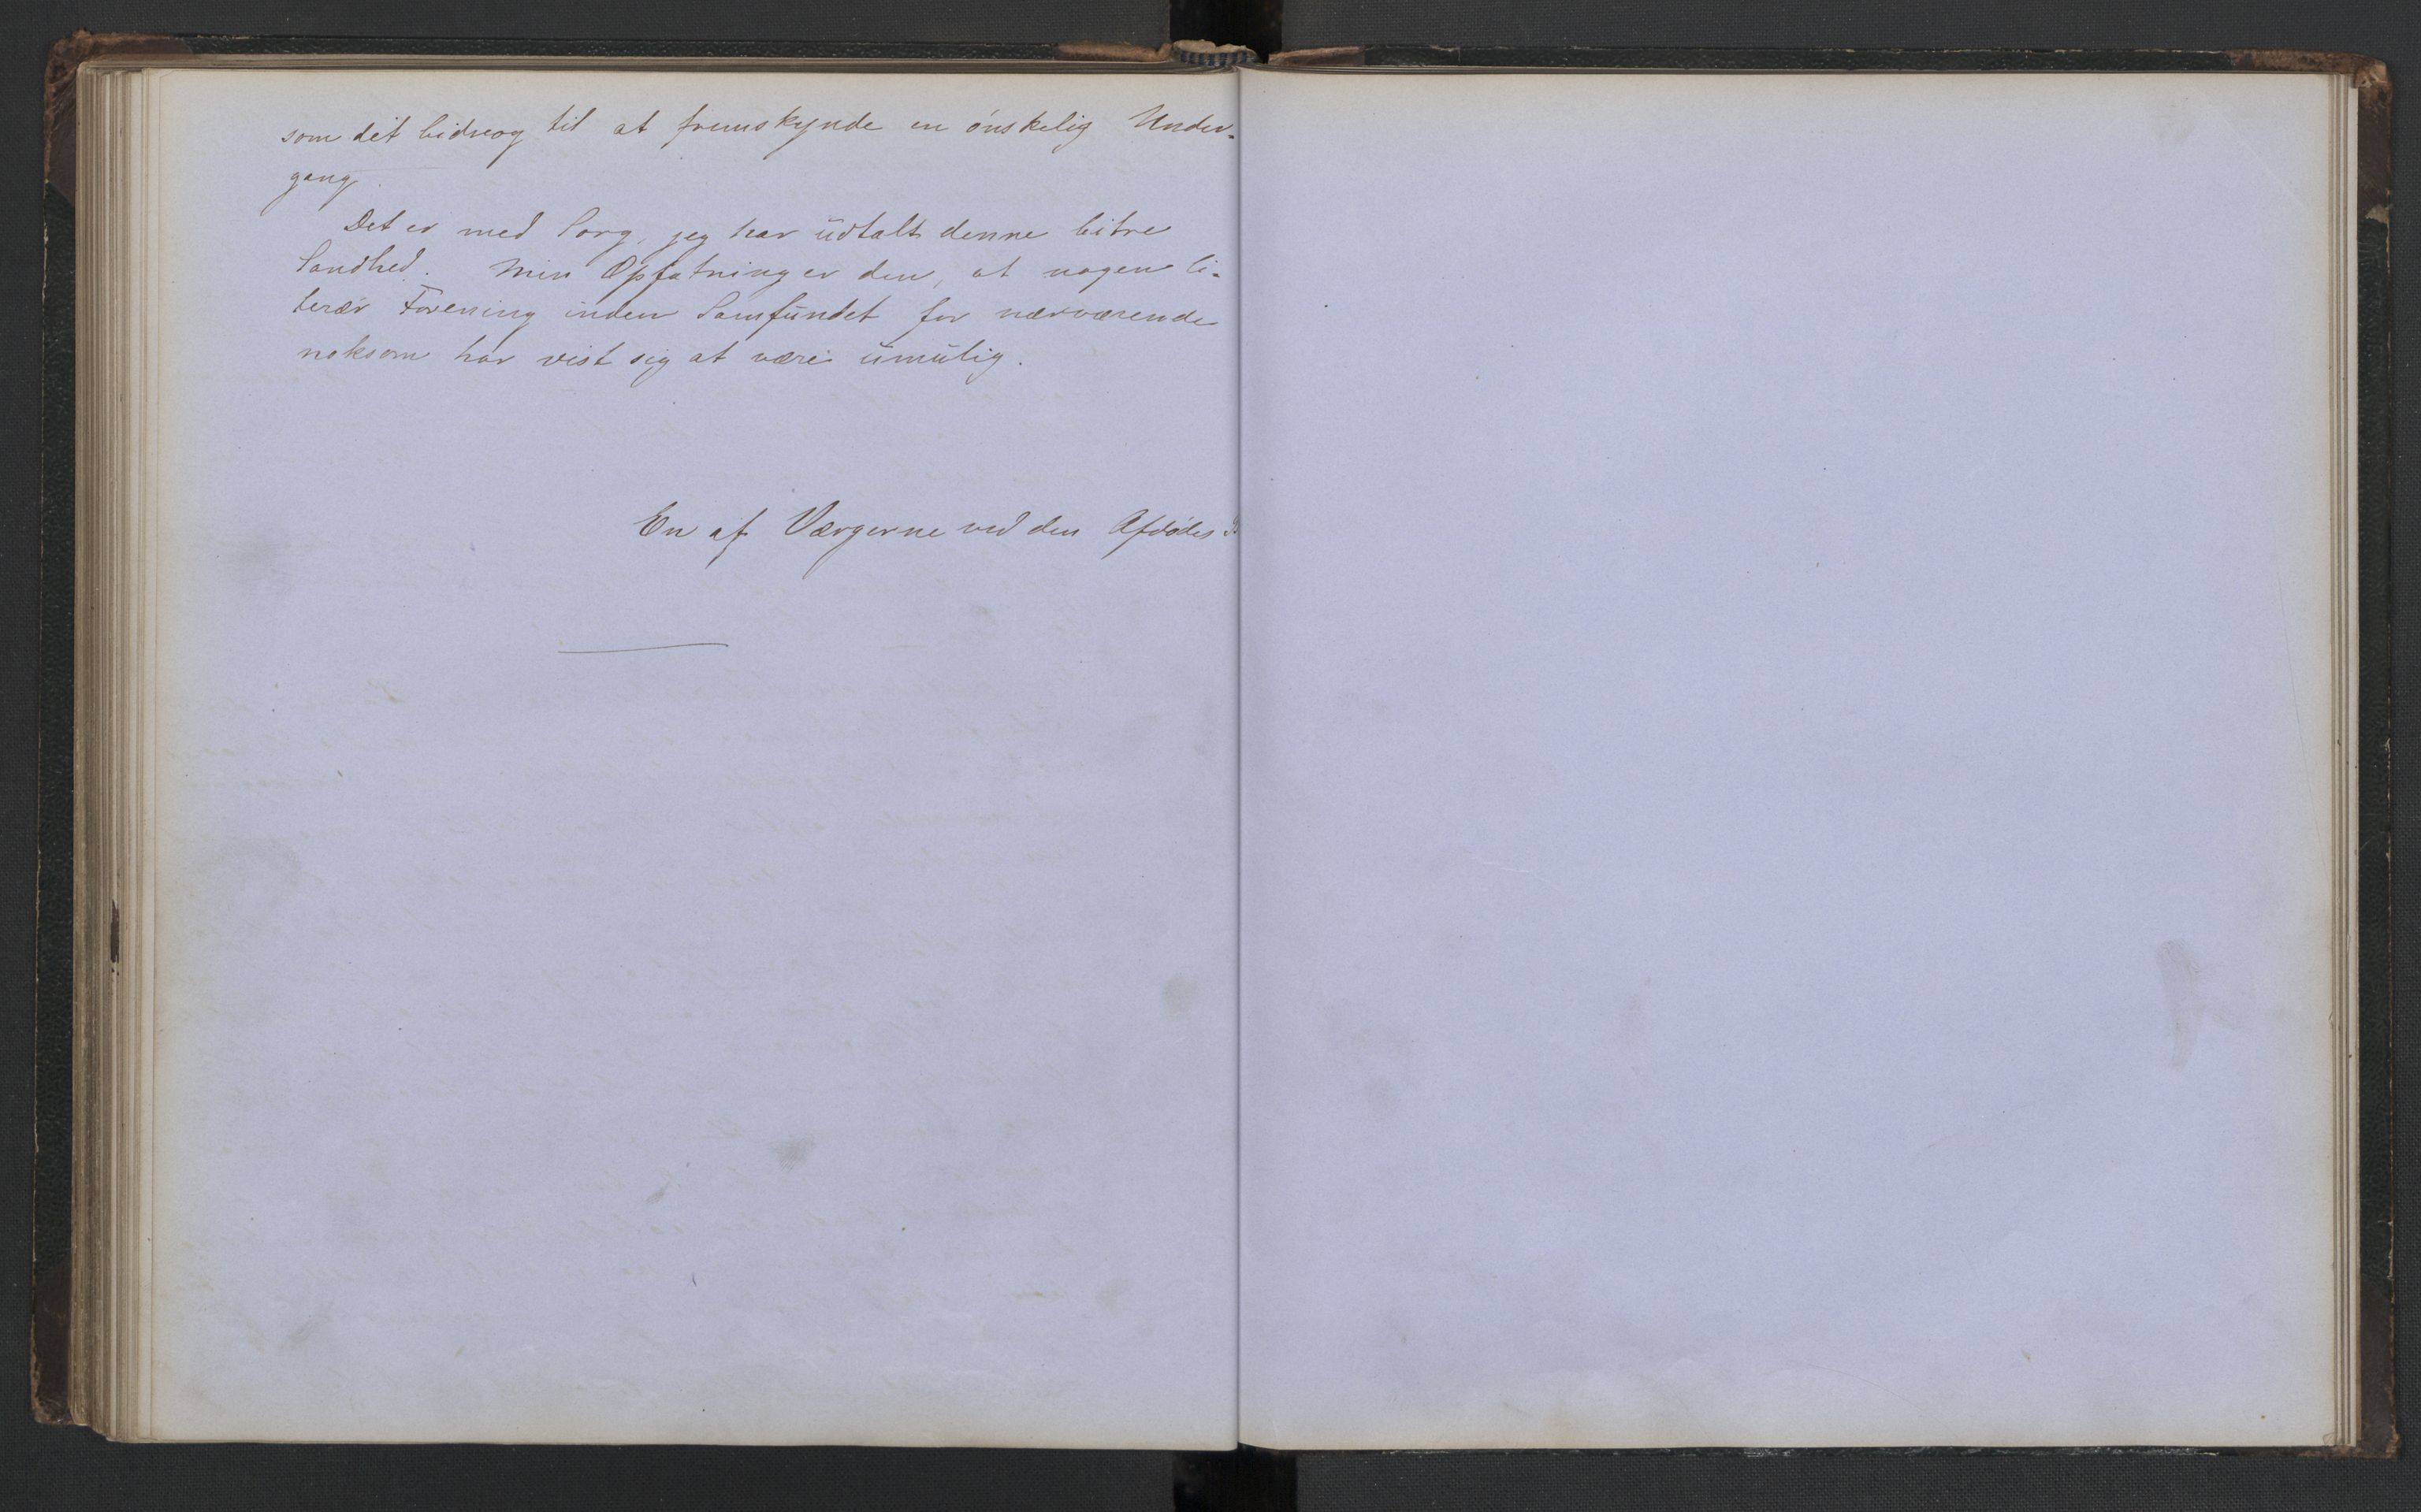 som det bidrog til at fremskynde en ønskelig Under-
gang.
Det er med Sorg, jeg har udtalt denne bitre
Sandhed. Min Opfatning er den, at nogen li-
terær Forening inden Samfundet for nærværende
noksom har vist sig at være umulig.
En af Værgerne ved den Afdødes